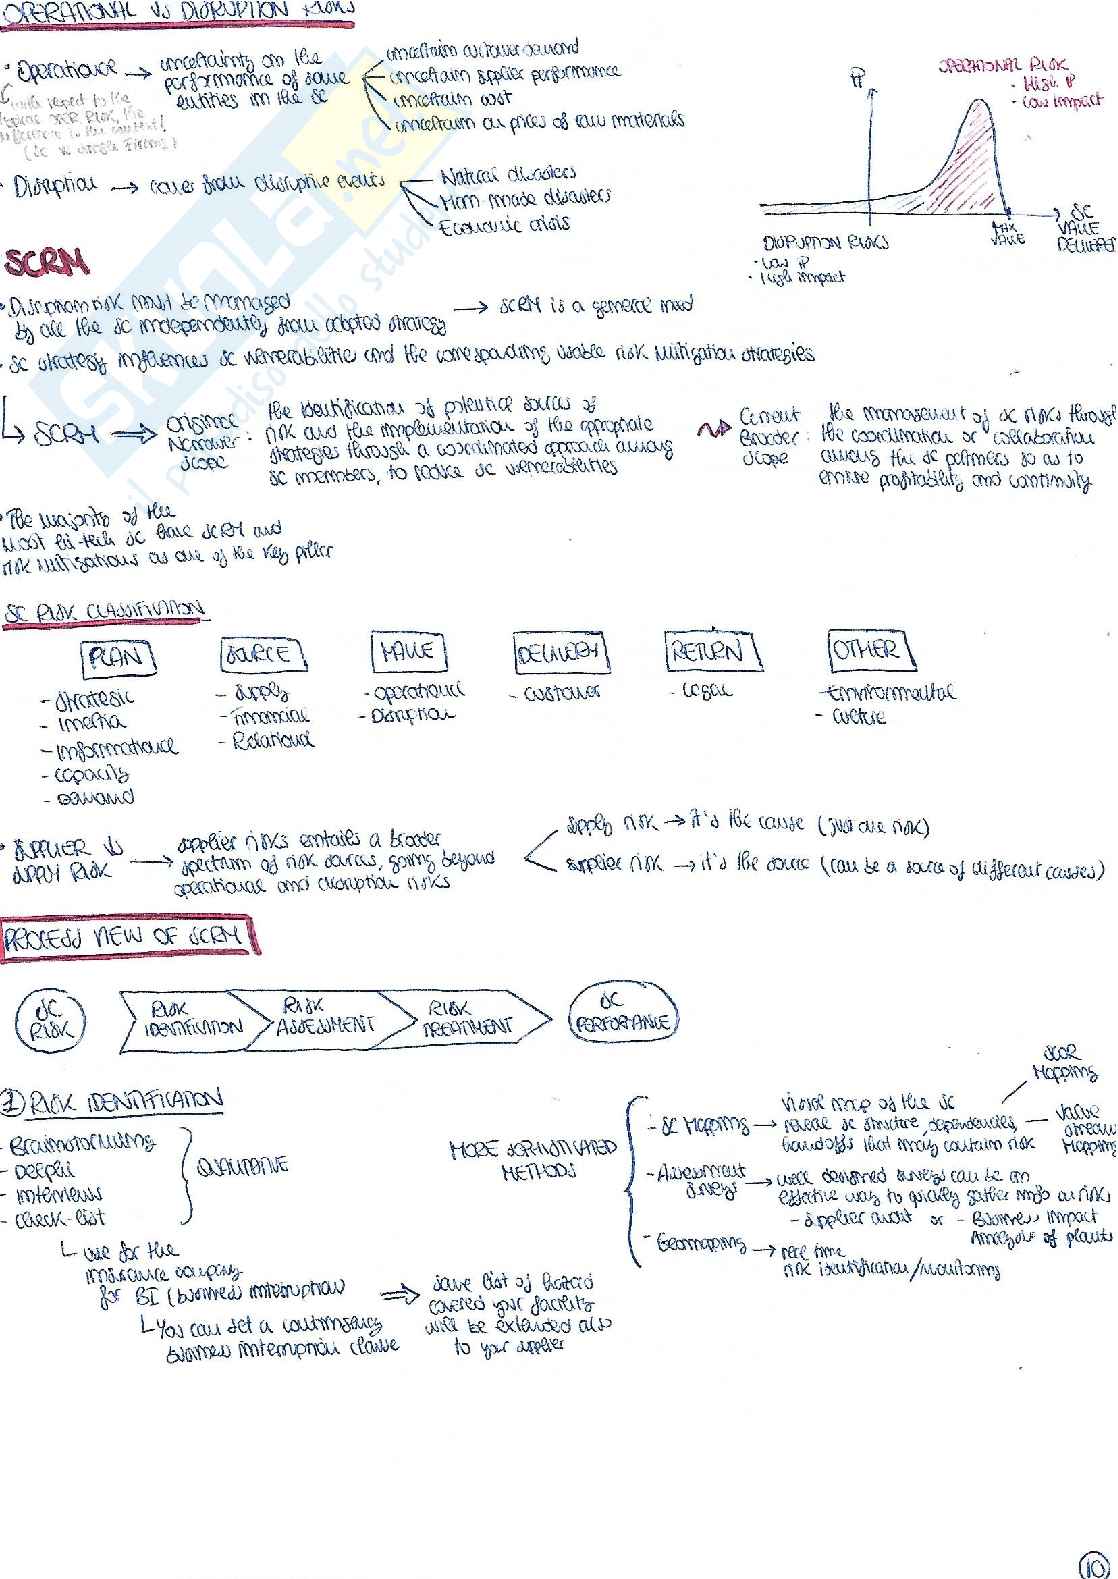 OPERATIONAL VS DISRUPTION RISKS
· Operational → uncertainty on the performance of some entities in the SC
uncertain customer demand
uncertain supplier performance
uncertain cost
uncertain on prices of raw materials
with regard to the
(SC vs single firm)
· Disruption → comes from disruptive events
Natural disasters
Man made disasters
Economic crisis
P
OPERATIONAL RISK
· High P
· Low impact
DISRUPTION RISKS
· Low P
· High impact
MAX VALUE
SC VALUE DELIVERED
SCRM
· Disruption risk must be managed
by all the SC independently from adopted strategy
→ SCRM is a general need
· SC strategy influences SC vulnerabilities and the corresponding usable risk mitigation strategies
SCRM ⇒
Original Narrower Scope :
the identification of potential sources of
risk and the implementation of the appropriate
strategies through a coordinated approach among
SC members, to reduce SC vulnerabilities
Current Broader Scope :
the management of SC risks through
the coordination or collaboration
among the SC partners so as to
ensure profitability and continuity
· The majority of the
most hi-tech SC have SCRM and
risk mitigations as one of the key pillar
SC RISK CLASSIFICATION
PLAN
- Strategic
- Inertia
- Informational
- Capacity
- Demand
SOURCE
- Supply
- Financial
- Relational
MAKE
- Operational
- Disruption
DELIVERY
- Customer
RETURN
- Legal
OTHER
- Environmental
- Culture
· SUPPLIER VS
SUPPLY RISK
→ supplier risks entails a broader
spectrum of risk sources, going beyond
operational and disruption risks
supply risk → it's the cause (just one risk)
supplier risk → it's the source (can be a source of different causes)
PROCESS VIEW OF SCRM
SC RISK
RISK IDENTIFICATION
RISK ASSESSMENT
RISK TREATMENT
SC PERFORMANCE
1 RISK IDENTIFICATION
- Brainstorming
- Delphi
- Interviews
- Check-list
QUALITATIVE
use for the
insurance company
for BI (business) interruption
You can set a contingency
business interruption clause
⇒ same list of hazard
covered your facility
will be extended also
to your supplier
MORE SOPHISTICATED
METHODS
- SC Mapping → visual map of the SC
reveal SC structure, dependencies,
handoffs that may contain risk
SCOR Mapping
Value Stream Mapping
- Assessment Surveys → well designed surveys can be an
effective way to quickly gather info on risks
- Supplier audit or - Business Impact
Analysis of plants
- Geomapping → real time
risk identification/monitoring
10
SKUOLA.net
il paradiso dello studente